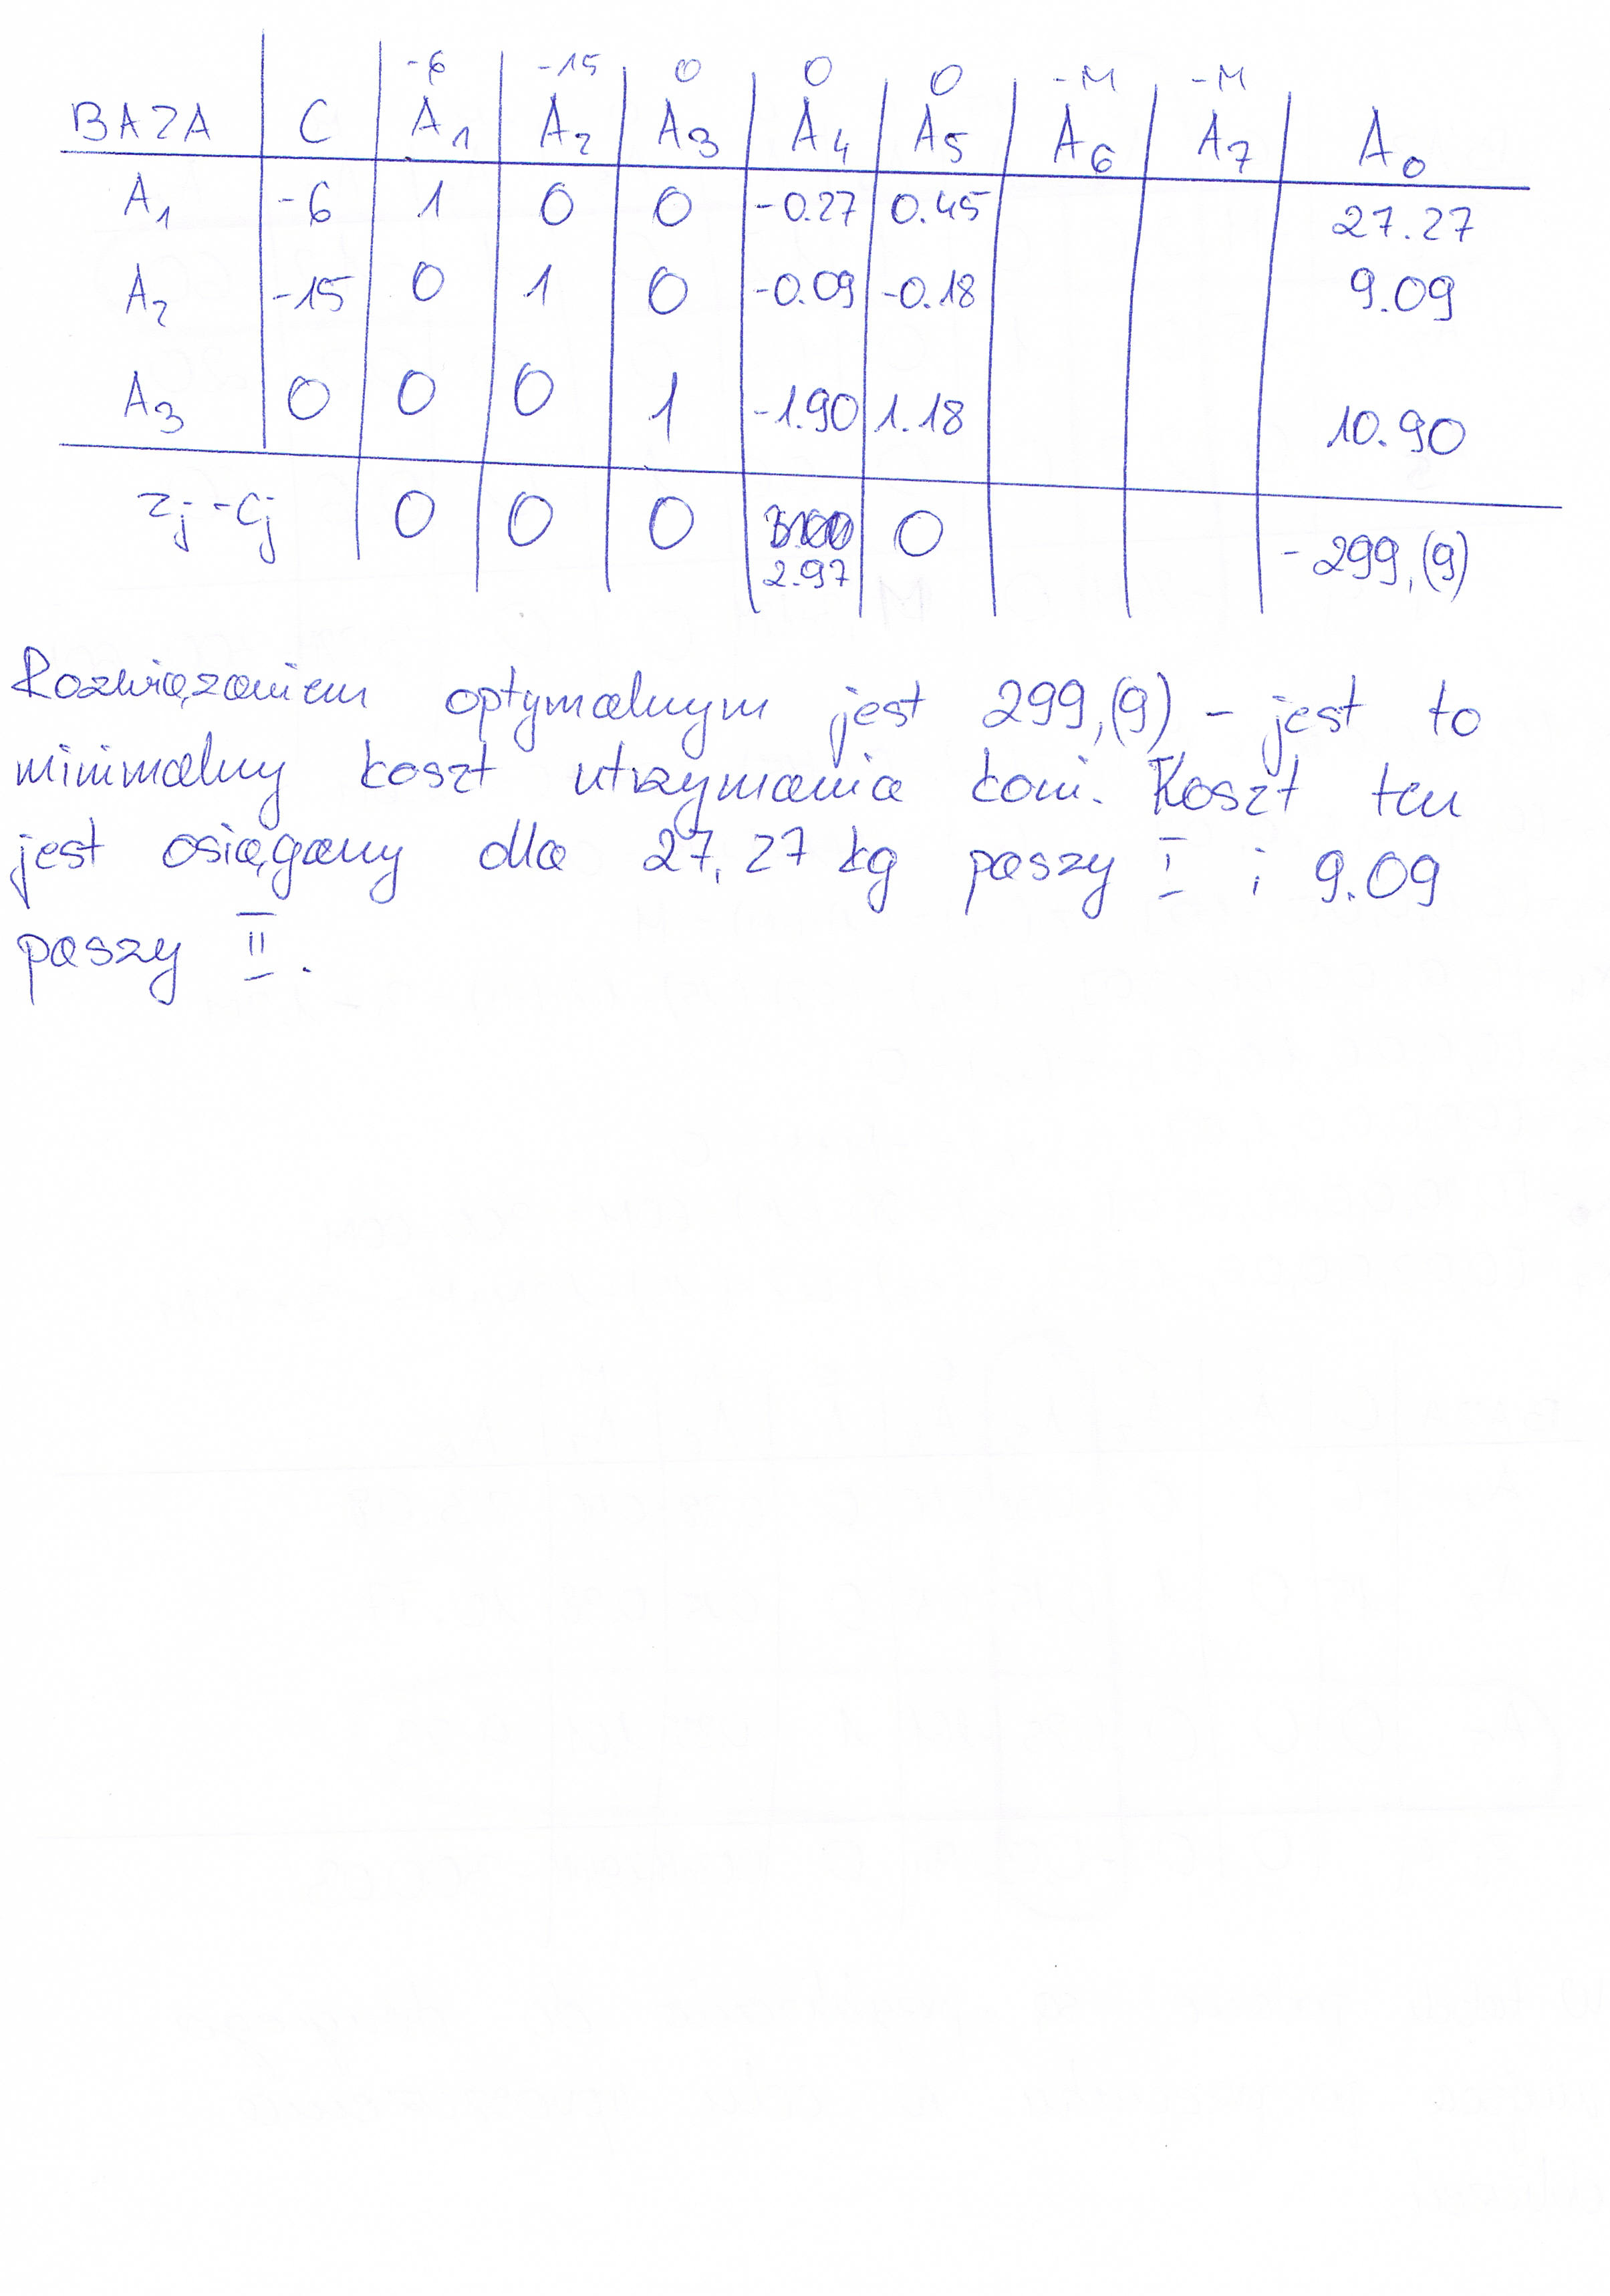 -6 -15 0 0 0 -M -M
BAZA C A1 A2 A3 A4 A5 A6 A7 A0
A1 -6 1 0 0 -0.27 0.45 27.27
A2 -15 0 1 0 -0.09 -0.18 9.09
A3 0 0 0 1 -1.90 1.18 10.90
zj-cj 0 0 0 2.97 0 -299,(9)
Rozwiązaniem optymalnym jest 299,(9) - jest to
minimalny koszt utrzymania koni. Koszt ten
jest osiągany dla 27,27 kg paszy I i 9.09
paszy II.